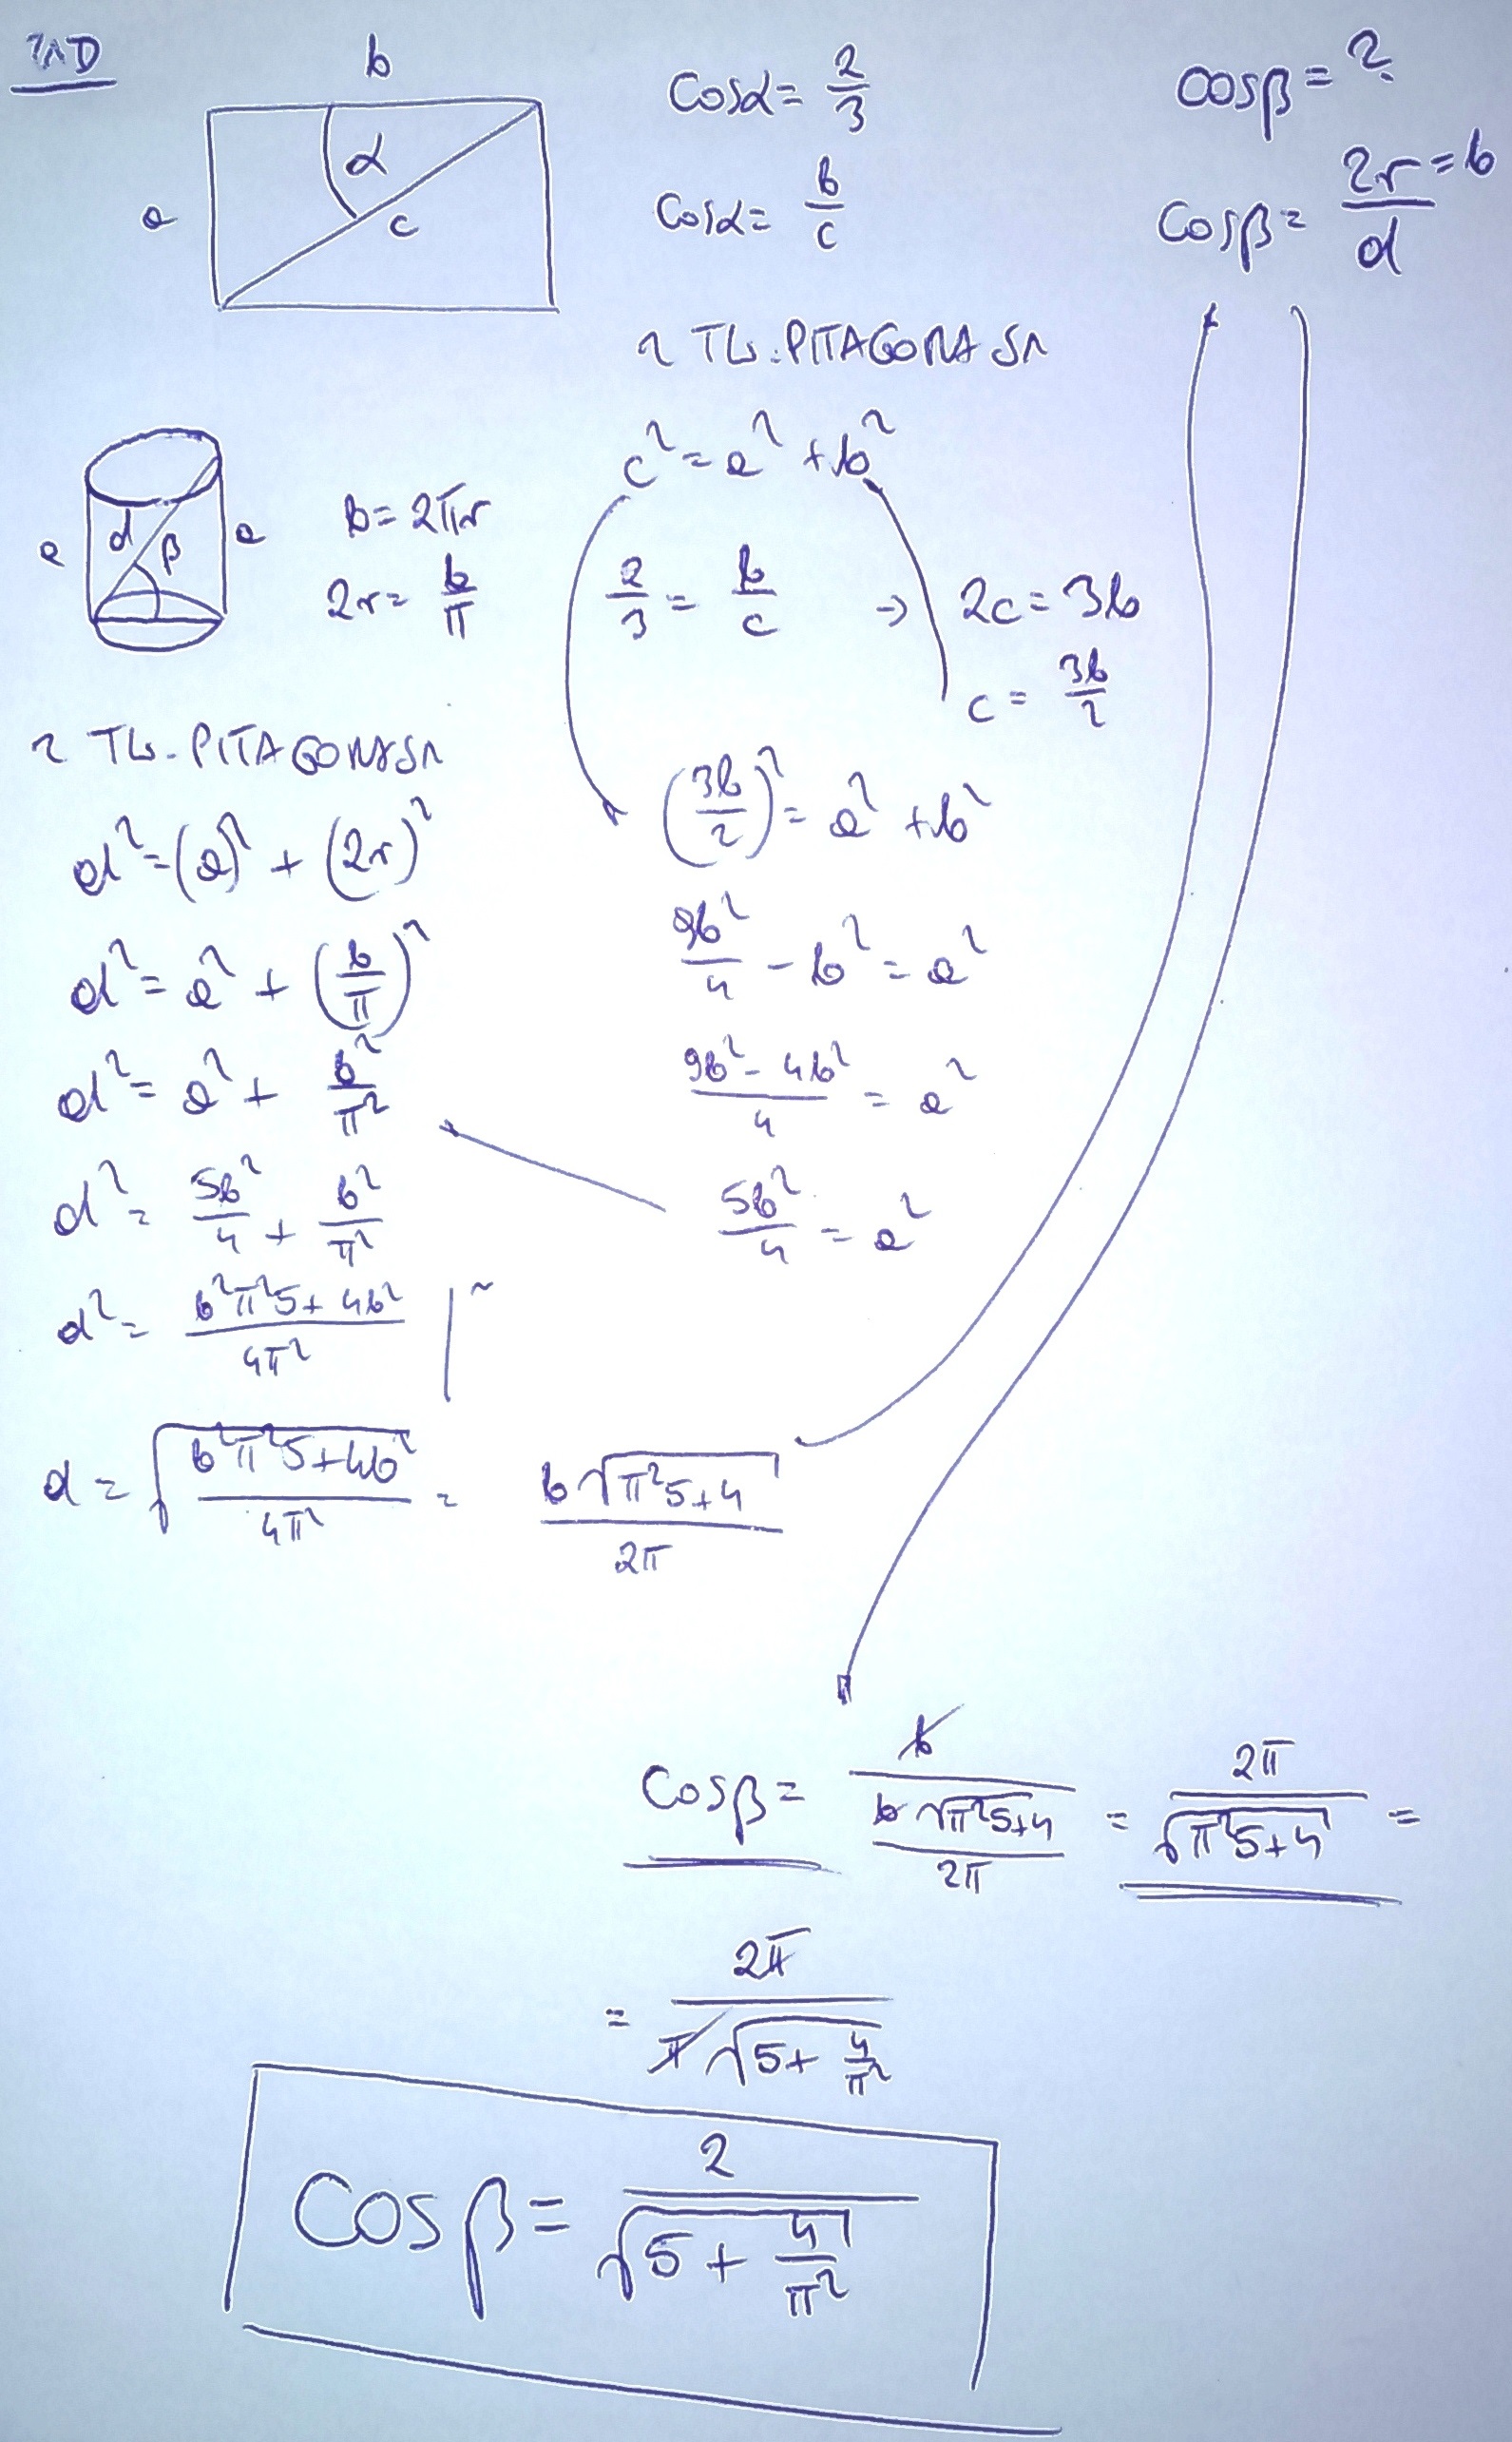 ZAD
b
a
α
c
cosα = 2/3
cosα = b/c
cosβ = ?
cosβ = 2r = b / d
z TW. PITAGORASA
c² = a² + b²
2/3 = b/c → 2c = 3b
c = 3b/2
(3b/2)² = a² + b²
9b²/4 - b² = a²
9b² - 4b² / 4 = a²
5b²/4 = a²
a
d
β
a
b = 2πr
2r = b/π
z TW. PITAGORASA
d² = (a)² + (2r)²
d² = a² + (b/π)²
d² = a² + b²/π²
d² = 5b²/4 + b²/π²
d² = b²π²5 + 4b² / 4π²
d = √(b²π²5 + 4b² / 4π²) = b√(π²5 + 4) / 2π
cosβ = b / (b√(π²5 + 4) / 2π) = 2π / √(π²5 + 4) =
= 2π / π√(5 + 4/π²)
cosβ = 2 / √(5 + 4/π²)